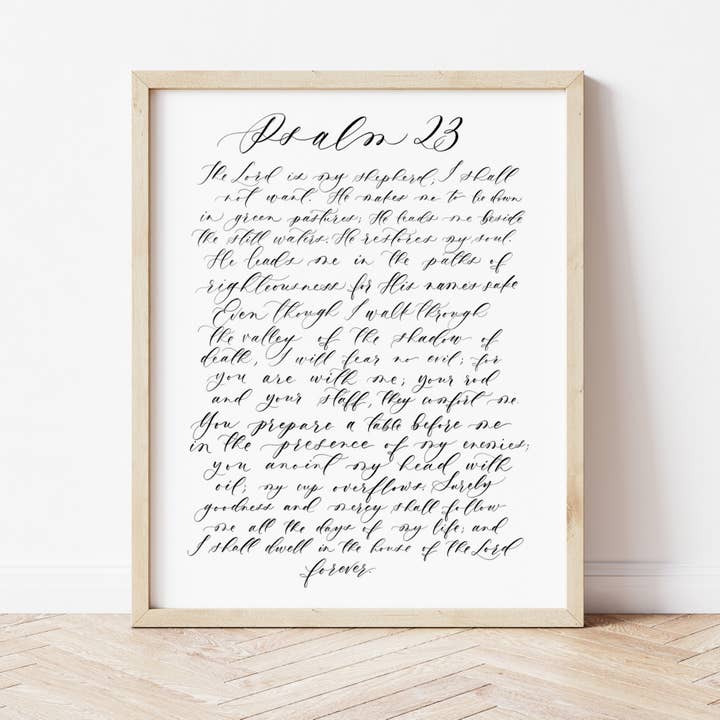 Psalm 23
The Lord is my shepherd, I shall
not want. He makes me to lie down
in green pastures; He leads me beside
the still waters. He restores my soul.
He leads me in the paths of
righteousness for His names sake
Even though I walk through
the valley of the shadow of
death, I will fear no evil; for
you are with me; your rod
and your staff, they comfort me.
You prepare a table before me
in the presence of my enemies;
you anoint my head with
oil; my cup overflows. Surely
goodness and mercy shall follow
me all the days of my life; and
I shall dwell in the house of the Lord
forever.